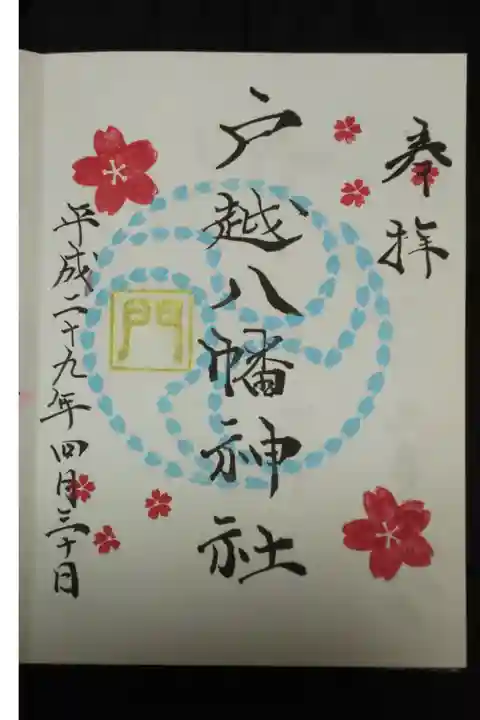 奉拝
戸越八幡神社
平成二十九年四月三十日
門